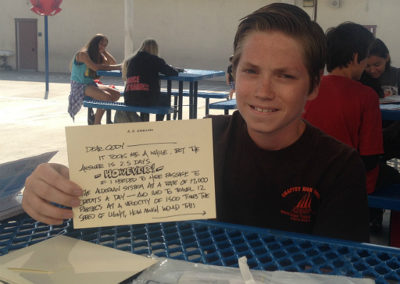 DEAR CODY
IT TOOK ME A WHILE, BUT THE
ANSWER IS 2.5 DAYS
HOWEVER!
IF I NEEDED TO HAVE PASSAGE TO
THE ALDERAAN SYSTEM AT A RATE OF 17,000
CREDITS A DAY — AND HAD TO TRAVEL 12
PARSECS AT A VELOCITY OF 1500 TIMES THE
SPEED OF LIGHT, HOW MUCH WOULD THIS